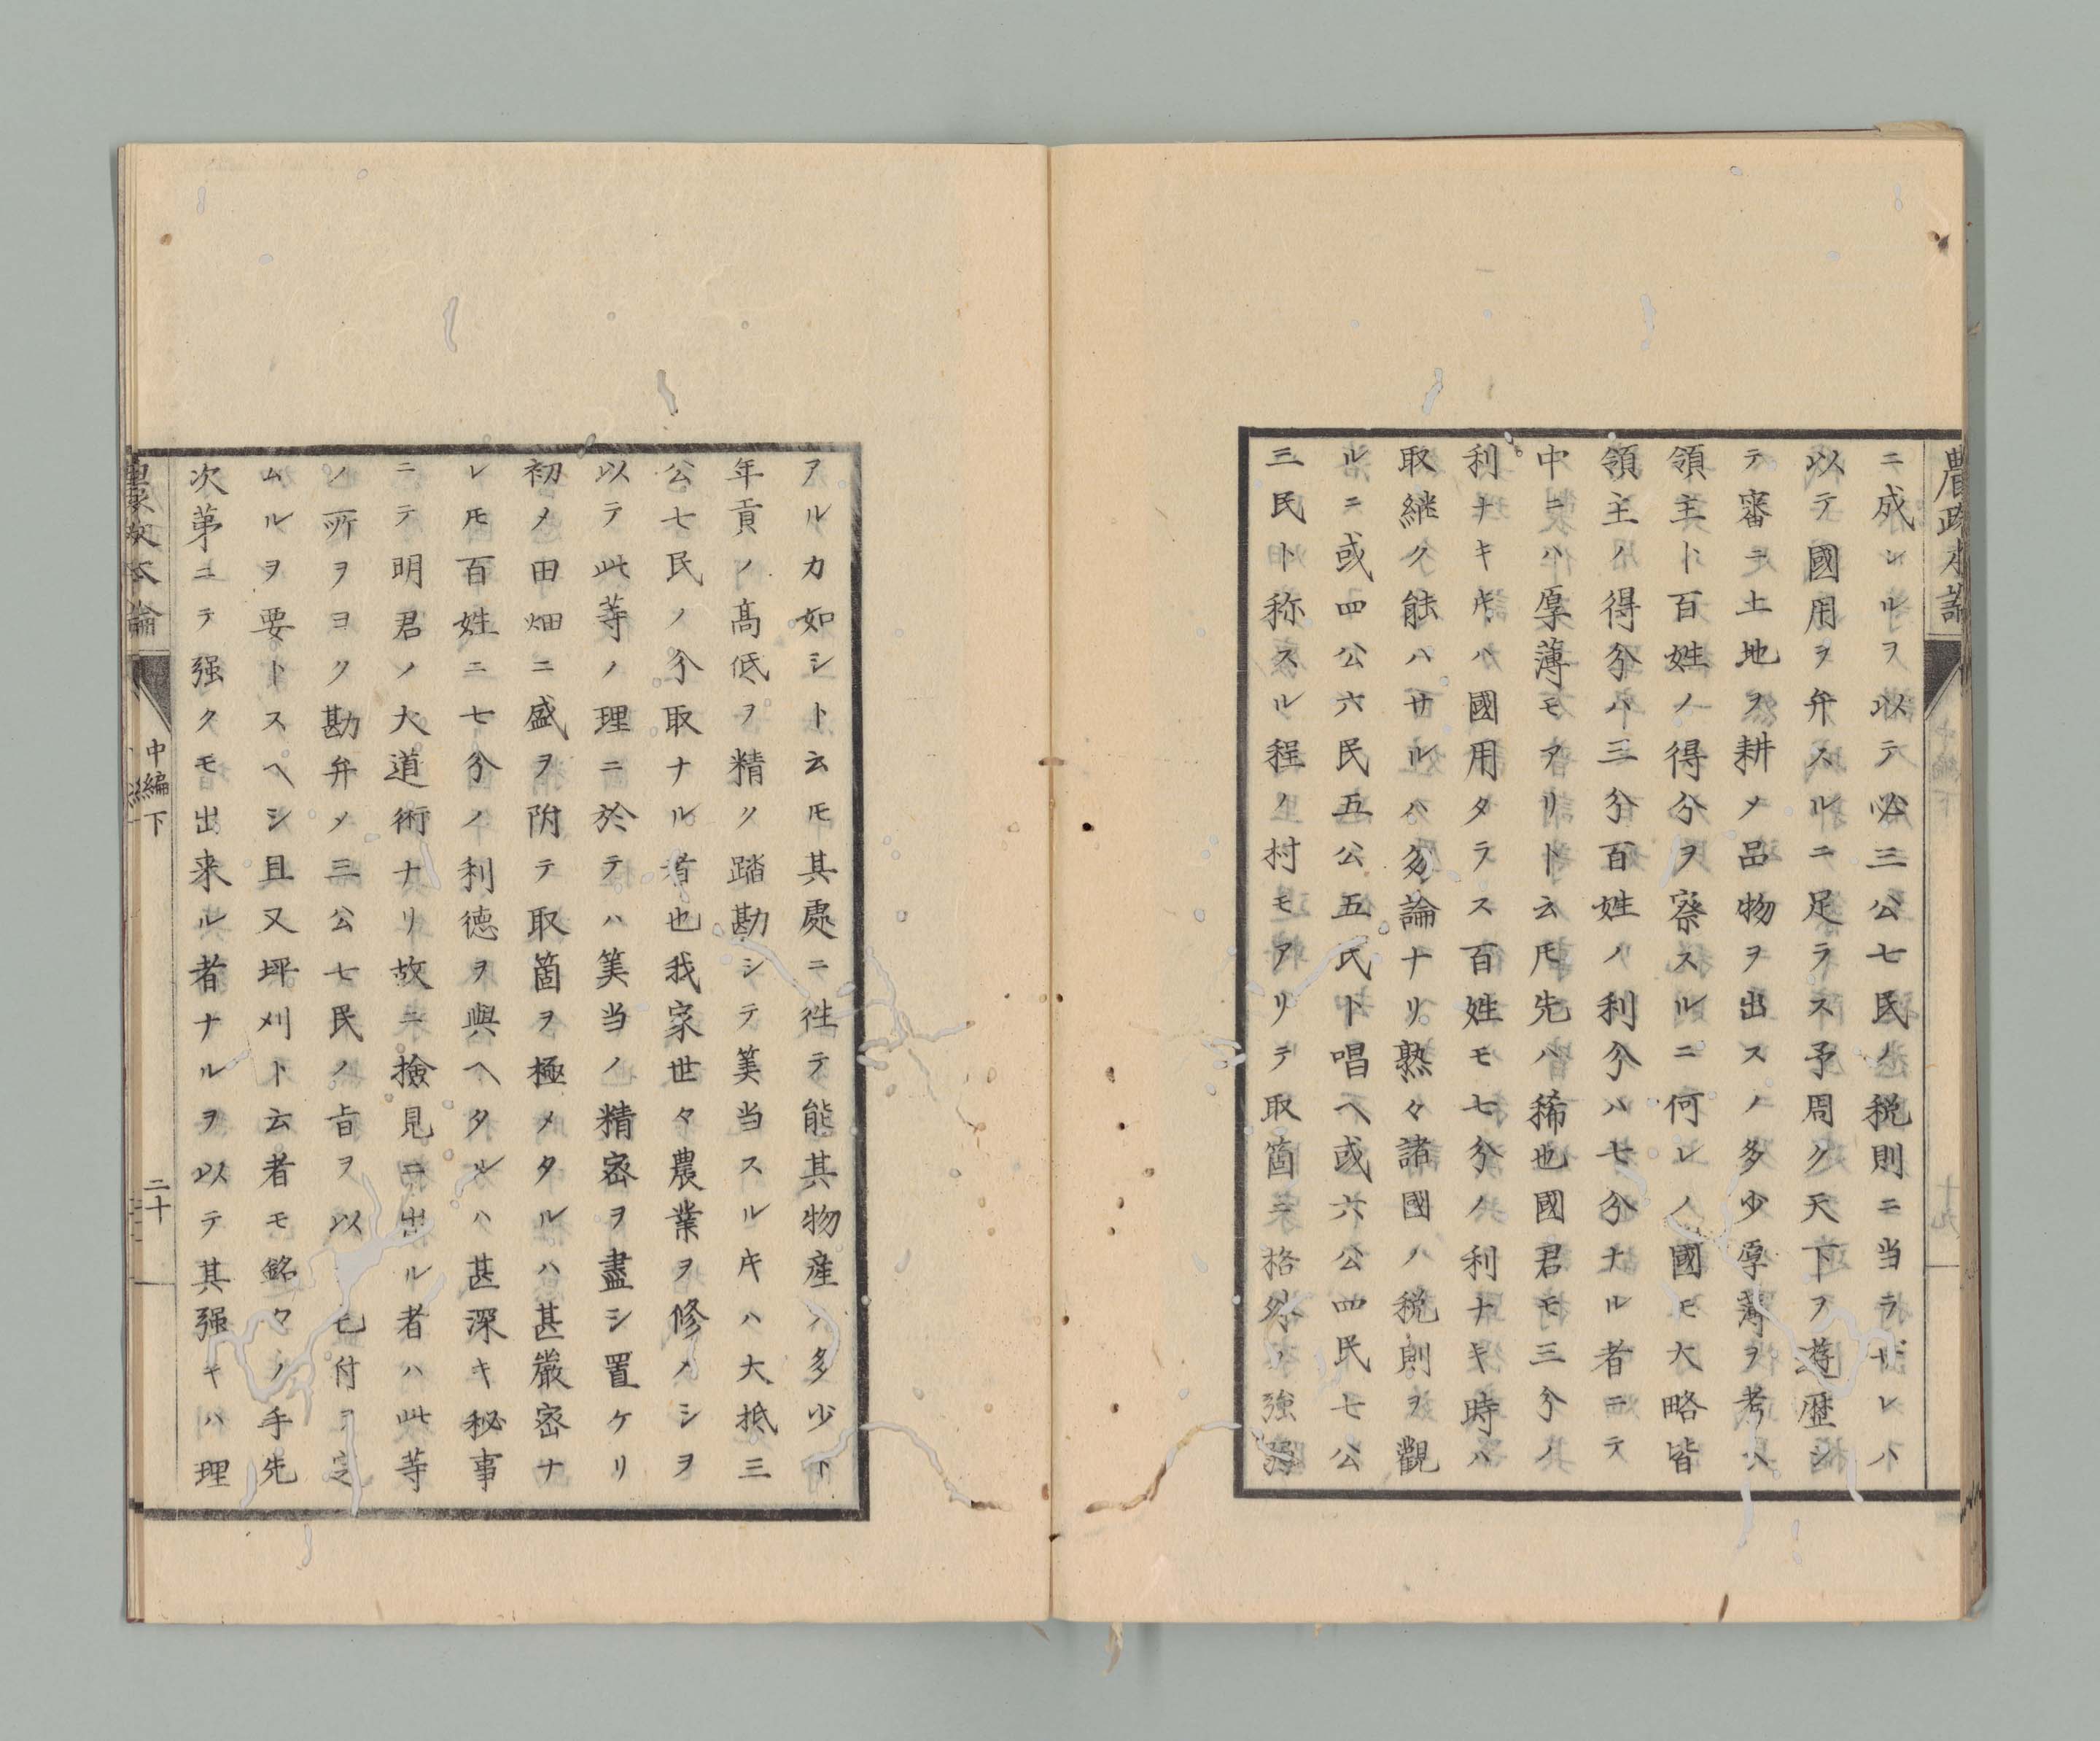 農政本論
ニ成シルヲ以テ必三公七民ノ税則ニ当ラザレハ
以テ國用ヲ弁スルニ足ラス予周ク天下ヲ遊歴シ
テ審ニ土地ヲ耕メ品物ヲ出スノ多少厚薄ヲ考ヘ
領主ト百姓ノ得分ヲ察スルニ何レノ國モ大略皆
領主ノ得分ハ三分百姓ノ利分ハ七分ナル者ニテ
中ニハ厚薄モヲリト云𪜈先ハ稀也國君モ三分ノ
利ナキ𪜈ハ國用タラス百姓モ七分ノ利ナキ時ハ
取継ク能ハサルハ勿論ナリ熟々諸國ノ税則ヲ觀
ルニ或四公六民五公五民ト唱ヘ或六公四民七公
三民ト称スル程ノ村モアリテ取箇ニ格外ノ強弱
アルカ如シト云𪜈其處ニ徃テ能其物産ノ多少ト
年貢ノ髙低ヲ精ク踏勘シテ筭当スル𪜈ハ大抵三
公七民ノ分取ナル者也我家世々農業ヲ修メシヲ
以テ此等ノ理ニ於テハ筭当ノ精宻ヲ盡シ置ケリ
初メ田畑ニ盛ヲ附テ取箇ヲ極メタルハ甚嚴宻ナ
レ𪜈百姓ニ七分ノ利德ヲ與ヘタルハ甚深キ秘事
ニテ明君ノ大道術ナリ故ニ撿見ニ出ル者ハ此等
ノ所ヲヨク勘弁メ三公七民ノ旨ヲ以モ付ヲ定
ムルヲ要トスヘシ且又坪刈ト云者モ銘々ノ手先
次苐ニテ强クモ出来ル者ナルヲ以テ其强キハ理
農政本論
中編下
二十